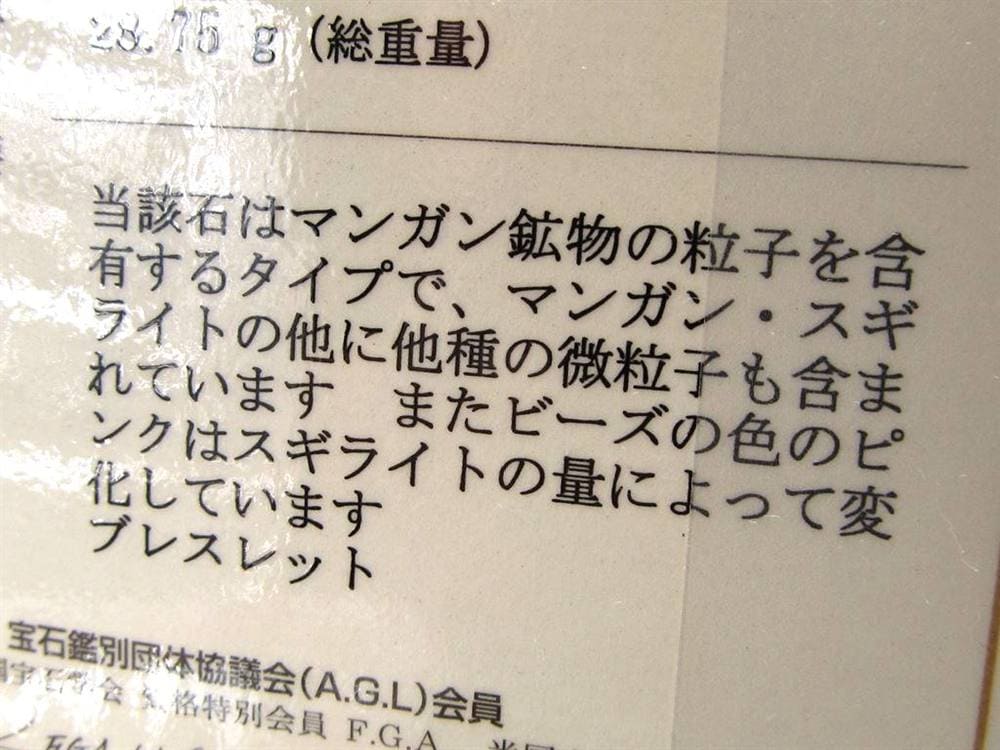 28.75 g (総重量)
当該石はマンガン鉱物の粒子を含
有するタイプで、マンガン・スギ
ライトの他に他種の微粒子も含ま
れています　またビーズの色のピ
ンクはスギライトの量によって変
化しています
ブレスレット
宝石鑑別団体協議会(A.G.L)会員
国宝石学会 資格特別会員 F.G.A